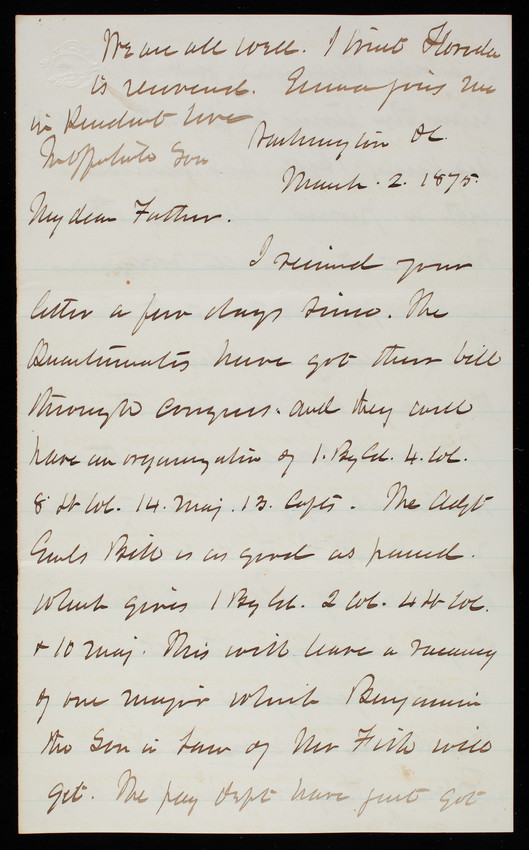 We are all well. I trust Florida
is recovered. Emma joins me
in kindest love
Yr affectionate Son
Washington DC.
March. 2. 1875.
My dear Father.
I received your
letter a few days since. The
Quartermasters have got their bill
through Congress. and they will
have an organization of 1. Bg Gl. 4. Col.
8 Lt Col. 14. Maj. 13. Capts. The Adjt
Genls Bill is as good as passed.
Which gives 1 Bg Gl. 2 Col. 4 Lt Col.
+ 10 Maj. This will leave a vacancy
of one major which Benjamin
the Son in Law of Mr Fish will
get. The pay Dept have just got